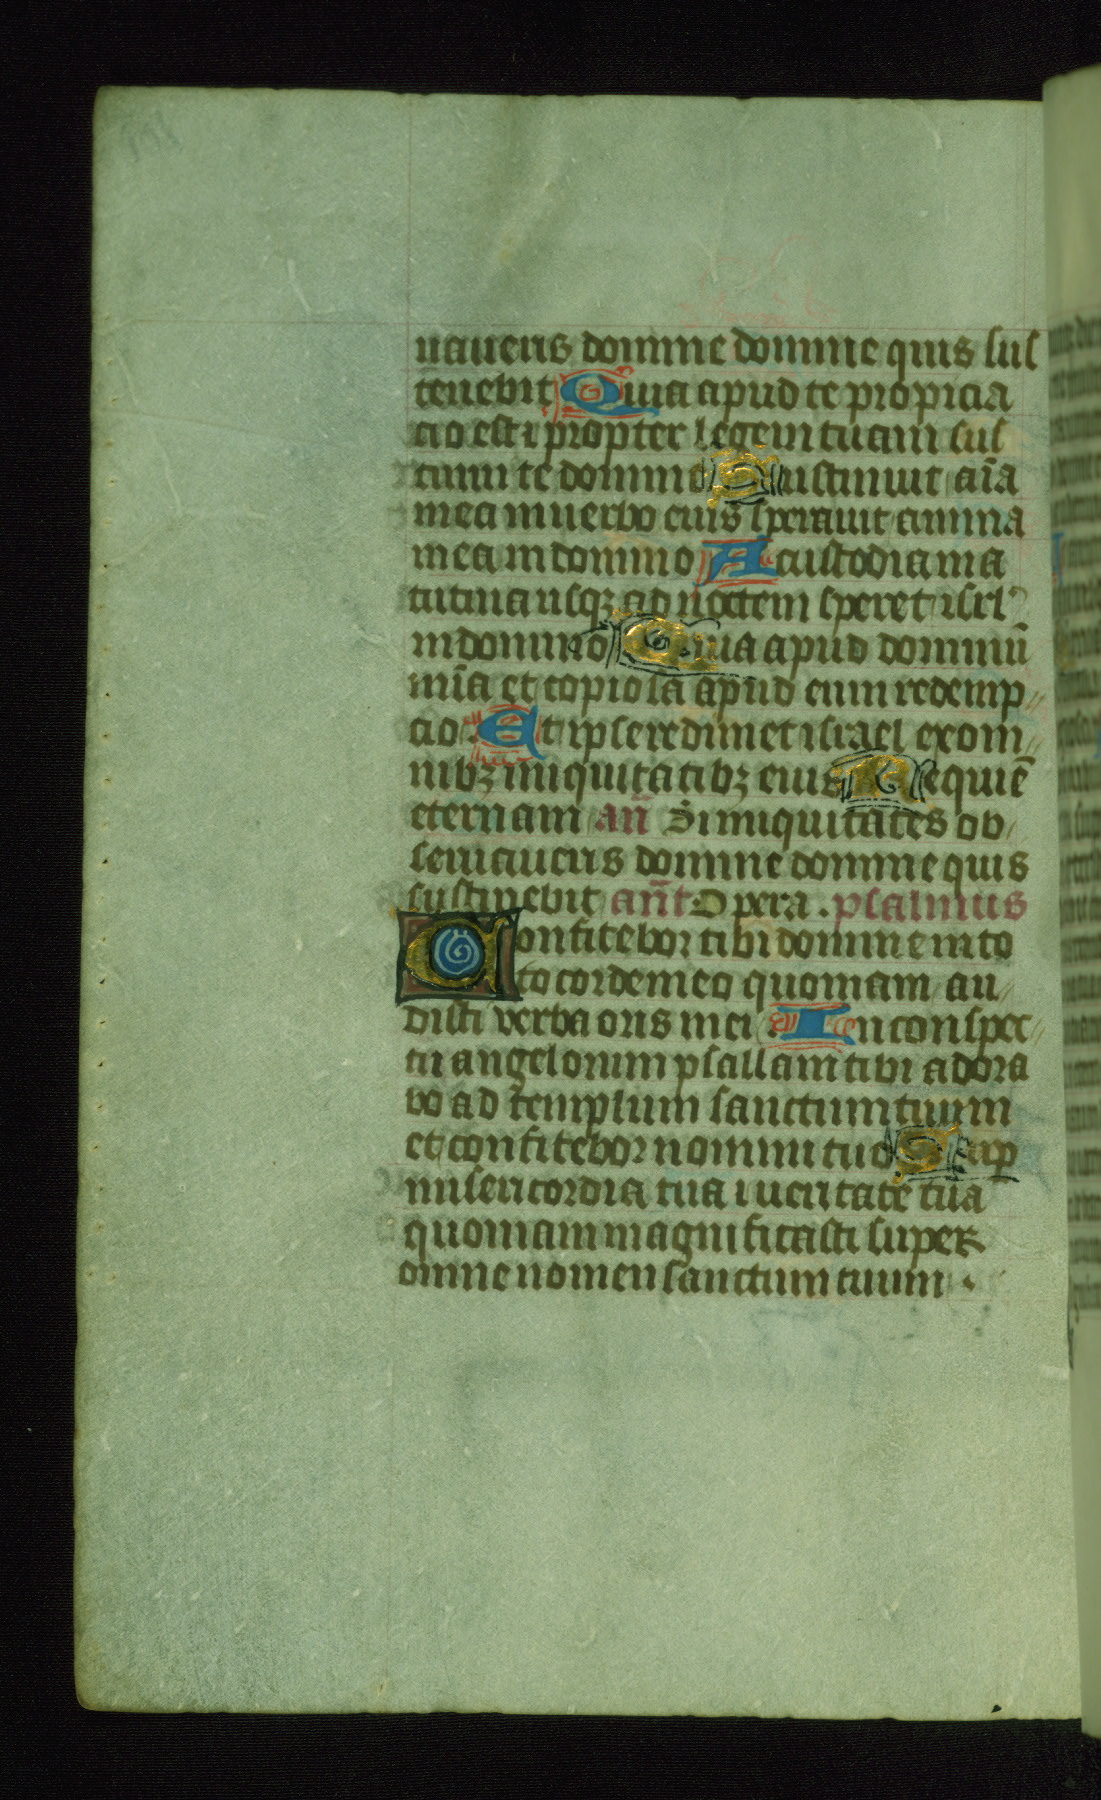 uaueris domine domine quis sus
tinebit Quia apud te propicia
cio est ⁊ propter legem tuam sus
tinui te domine Sustinuit aīa
mea in uerbo eius sperauit anima
mea in domino A custodia ma
tutina usqꝫ ad noctem speret isrl'
in domino Quia apud dominū
mīa et copiosa apud eum redemp
cio. Et ipse redimet israel ex om
nibꝫ iniquitatibꝫ eius Requiē
eternam an̄ Si iniquitates ob
seruaueris domine domine quis
sustinebit an̄t Opera . psalmus
Confitebor tibi domine in to
to corde meo quoniam au
disti verba oris mei . In conspec
tu angelorum psallam tibi adora
bo ad templum sanctum tuum
et confitebor nomini tuo Sup
misericordia tua ⁊ ueritate tua
quoniam magnificasti super
omne nomen sanctum tuum .